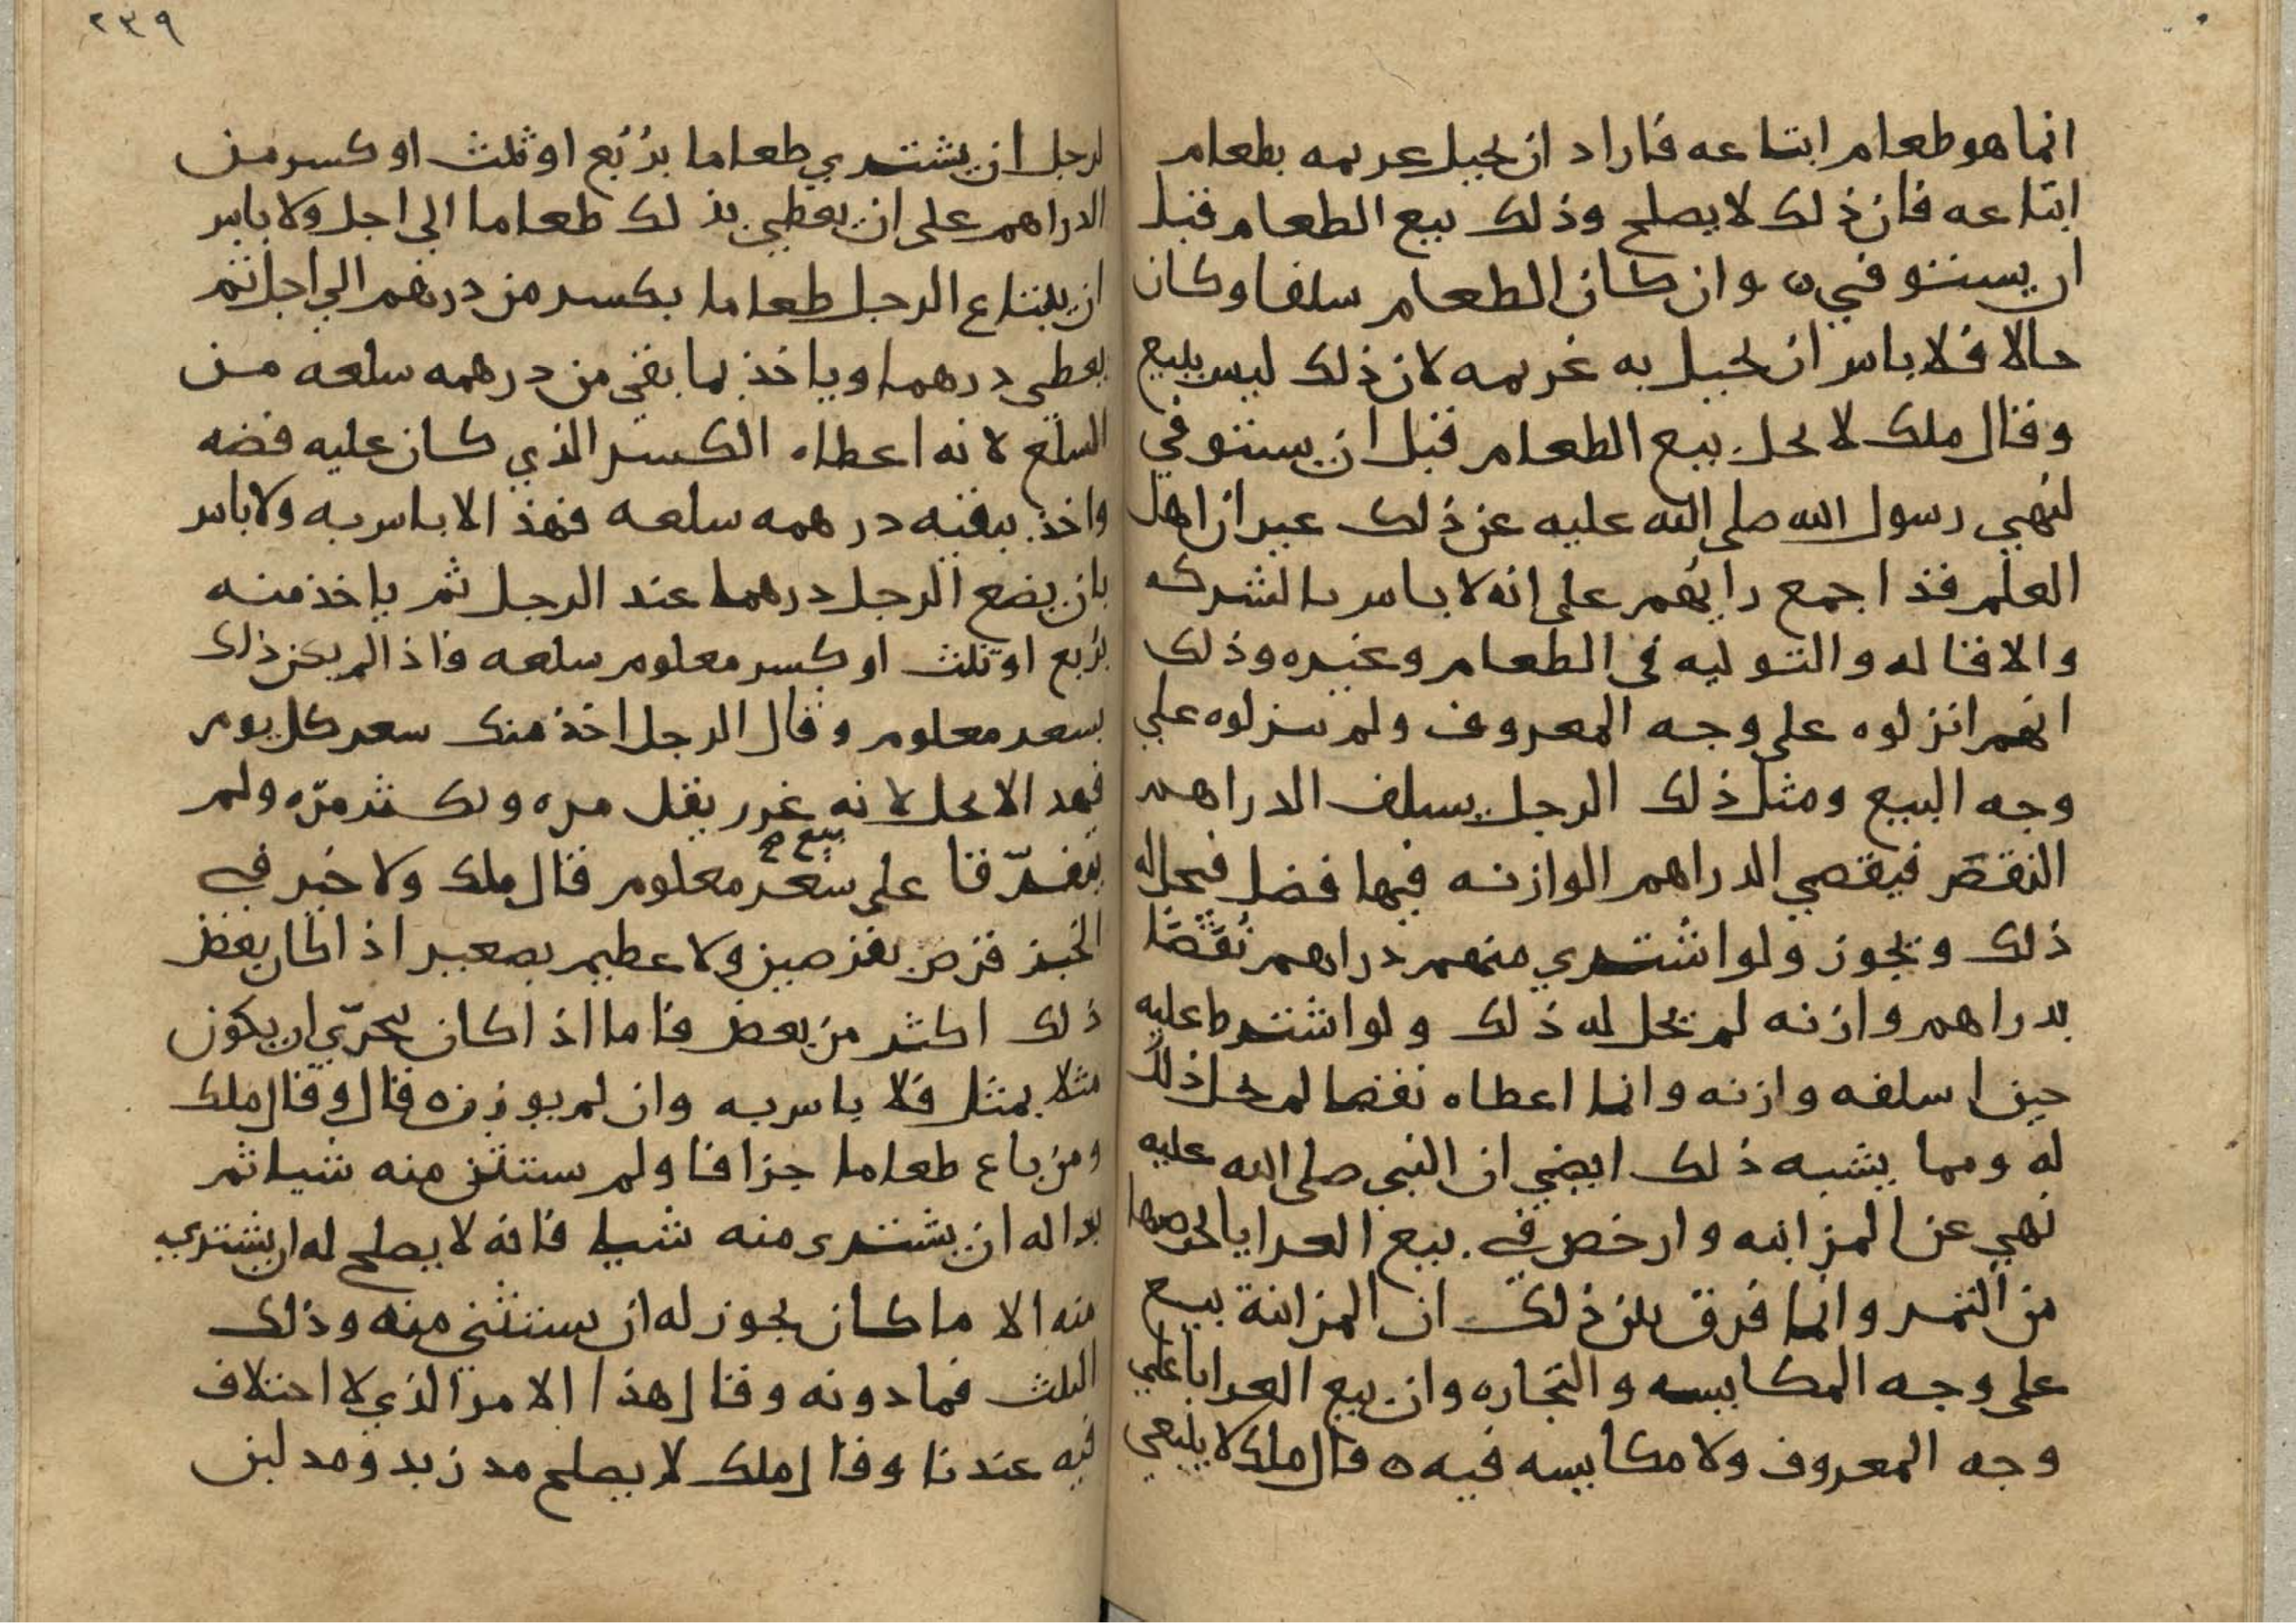 انما هو طعام ابتاعه فاراد ان يحيل غريمه بطعام
ابتاعه فان ذلك لا يصلح وذلك بيع الطعام قبل
ان يستوفي ه وان كان الطعام سلفا وكان
حالا فلا باس ان يحيل به غريمه لان ذلك ليس ببيع
وقال ملك لا يحل بيع الطعام قبل ان يستوفي
لنهي رسول الله صلى الله عليه عن ذلك غير ان اهل
العلم قد اجمع رايهم على انه لا باس بالشركه
والاقاله والتوليه في الطعام وغيره وذلك
انهم انزلوه على وجه المعروف ولم ينزلوه علي
وجه البيع ومثل ذلك الرجل يسلف الدراهم
النقص فيقضي الدراهم الوازنه فيها فضل فيحل له
ذلك ويجوز ولو اشتري منهم دراهم نُقَّصًا
بدراهم وازنه لم يحل له ذلك ولو اشترط عليه
حين اسلفه وازنه وانما اعطاه نقصا لم يحل ذلك
له ومما يشبه ذلك ايضي ان النبي صلى الله عليه
نهي عن المزابنه وارخص في بيع العرايا بخرصها
من التمر وانما فرق بين ذلك ان المزابنة بيع
على وجه المكايسه والتجاره وان بيع العرايا علي
وجه المعروف ولا مكايسه فيه ه قال ملك لا ينبغي
٢٣٩
لرجل ان يشتري طعاما برُبُع او ثلث او كسر من
الدراهم على ان يعطي بذلك طعاما الي اجل ولا باس
ان يبتاع الرجل طعاما بكسر من درهم الي اجل ثم
يعطي درهما وياخذ بما بقي من درهمه سلعه من
السلع لانه اعطاه الكسر الذي كان عليه فضه
واخذ ببقيه درهمه سلعه فهذا لا باس به ولا باس
بان يضع الرجل درهما عند الرجل ثم ياخذ منه
بربع او ثلث او كسر معلوم سلعه فاذا لم يكن ذلك
بسعر معلوم وقال الرجل اخذ منك سعر كل يوم
فهذا لا يحل لانه غرر يقل مره ويكثر مرّه ولم
يفترّقا على سعر معلوم قال ملك ولا خير في
بيع صح
الخبز قرص بقرصين ولا عظيم بصغير اذا كان بعض
ذلك اكثر من بعض فاما اذا كان يتحرّي ان يكون
مثلا بمثل فلا باس به وان لم يوزن ه قال وقال ملك
ومن باع طعاما جزافا ولم يستثن منه شيا ثم
بدا له ان يشتري منه شيا فانه لا يصلح له ان يشتري
منه الا ما كان يجوز له ان يستثني منه وذلك
الثلث فما دونه وقال هذا الامر الذي لا اختلاف
فيه عندنا وقال ملك لا يصلح مد زبد ومد لبن